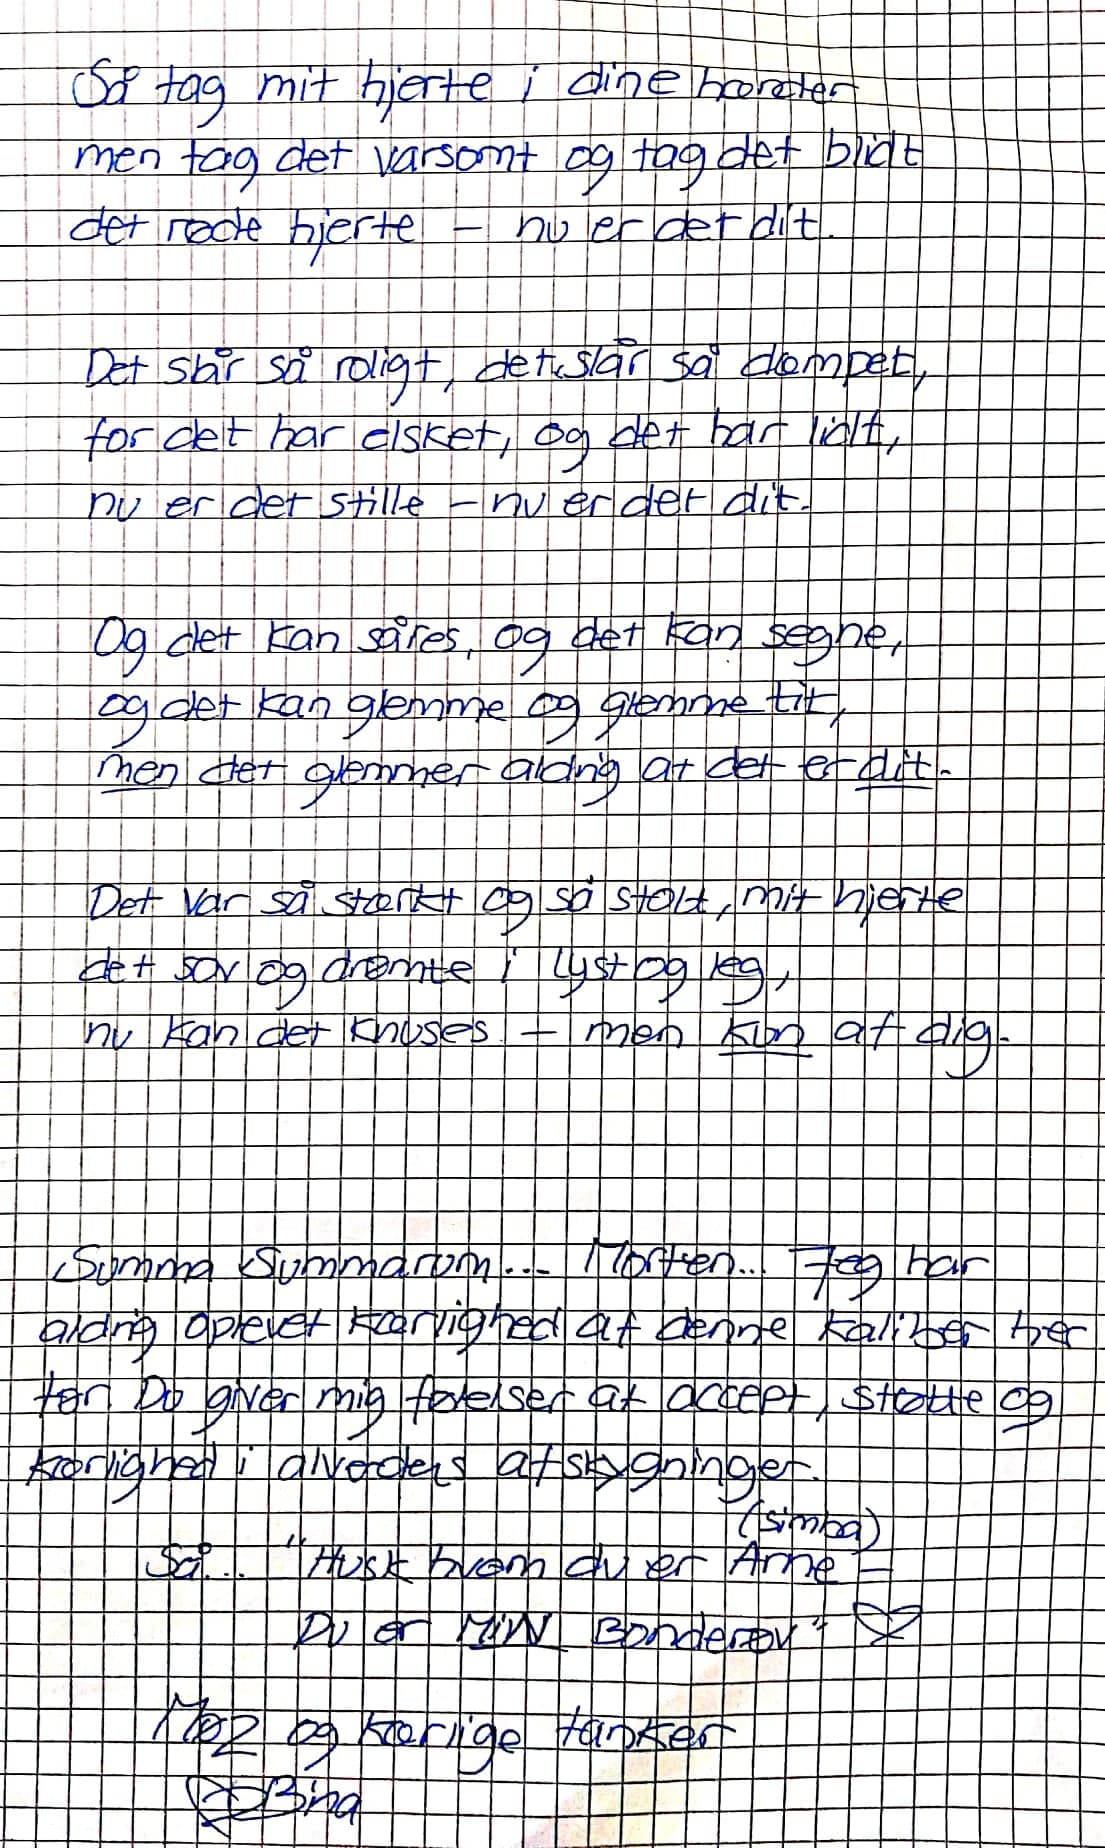 Så tag mit hjerte i dine hænder
men tag det varsomt og tag det blidt
det røde hjerte - nu er det dit.
Det slår så roligt, det slår så dæmpet,
for det har elsket, og det har lidt,
nu er det stille - nu er det dit.
Og det kan såres, og det kan segne,
og det kan glemme og glemme tit,
men det glemmer aldrig at det er dit.
Det var så stærkt og så stolt, mit hjerte
det sov og drømte i lyst og leg,
nu kan det knuses - men kun af dig.
Summa Summarum... Morten... Jeg har
aldrig oplevet kærlighed af denne kaliber her
før. Du giver mig følelser af accept, støtte og
kærlighed i alverdens afskygninger.
(simba)
Så... "Husk hvem du er Arne -
Du er MIN Bonderøv"
Møz og kærlige tanker
Bina